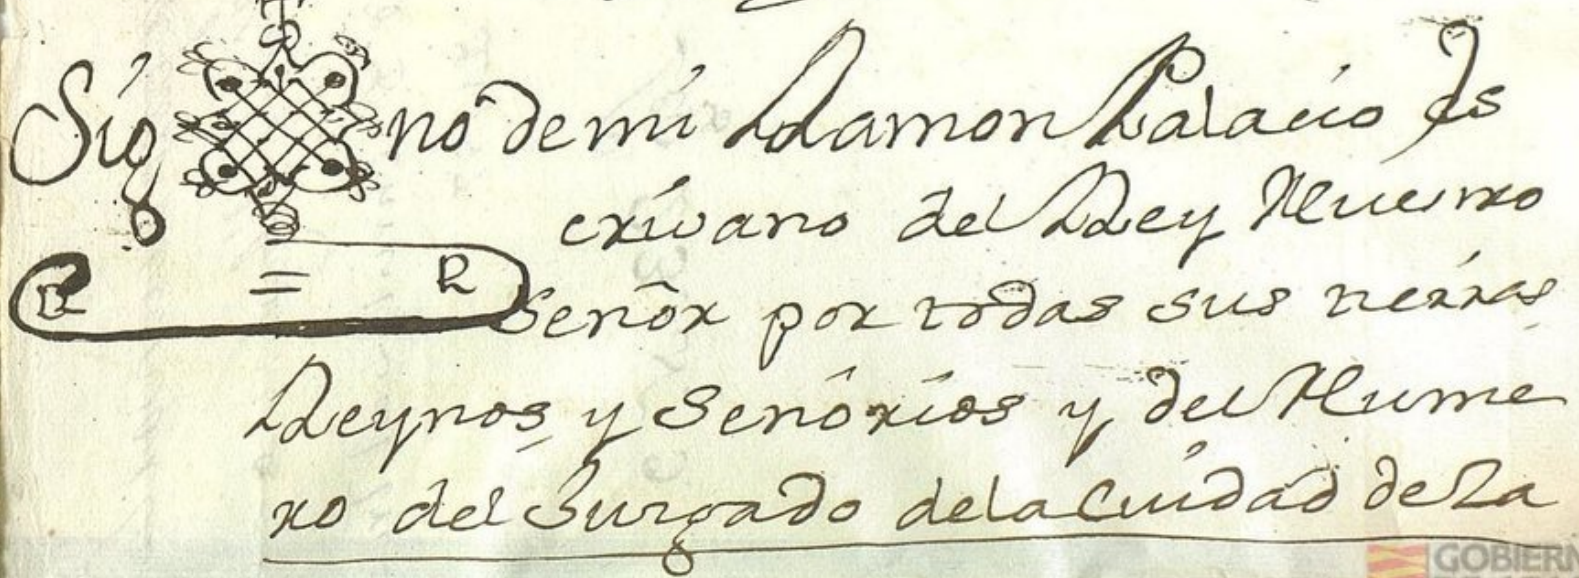 Sig no de mi Ramon Palacio Es
crivano del Rey Nuestro
R = R Señor por todas sus tierras
Reynos y Señorios y del Nume
ro del Juzgado de la Ciudad de Za
GOBIERN